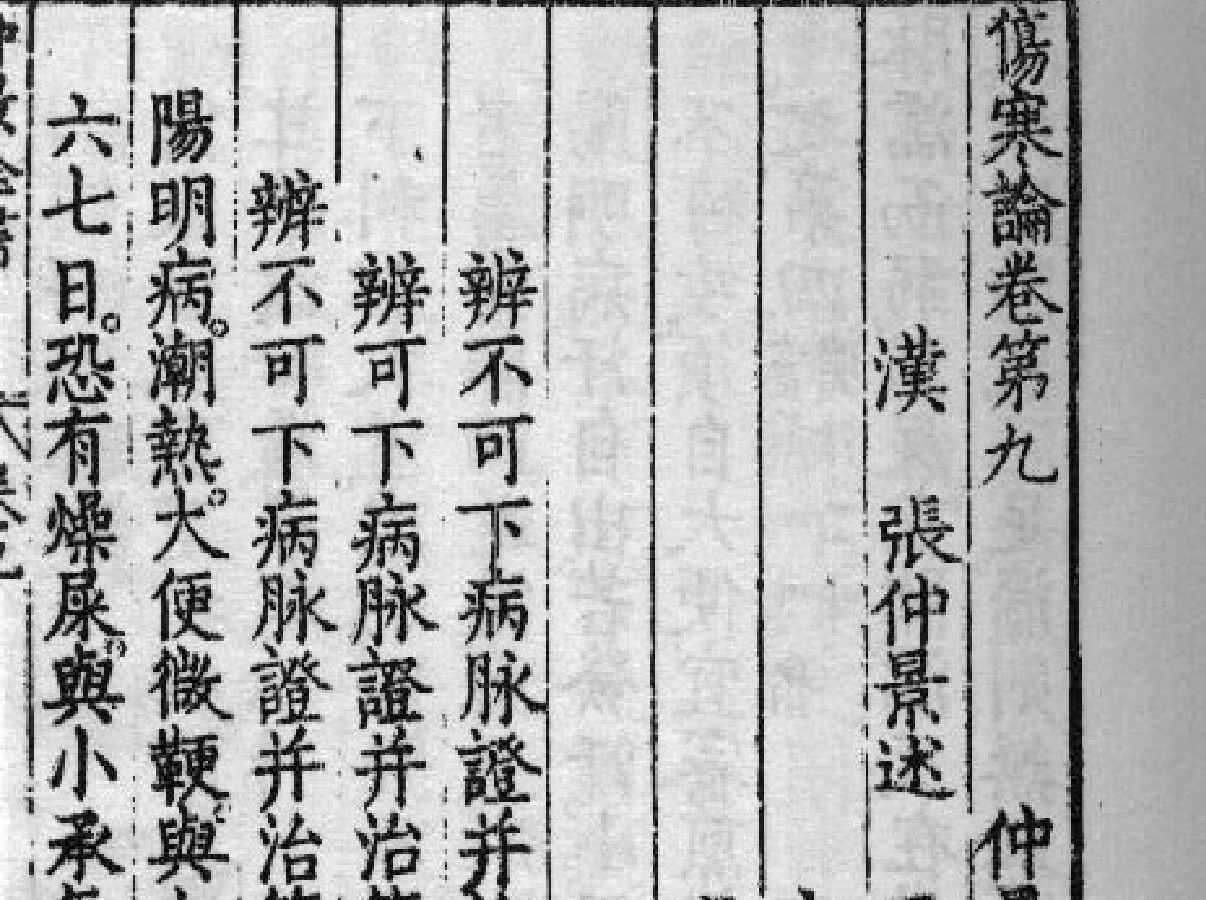 傷寒論卷第九 仲
漢 張仲景述
辨不可下病脉證并
辨可下病脉證并治
辨不可下病脉證并治
陽明病。潮熱。大便微鞕與
六七日。恐有燥屎與小承